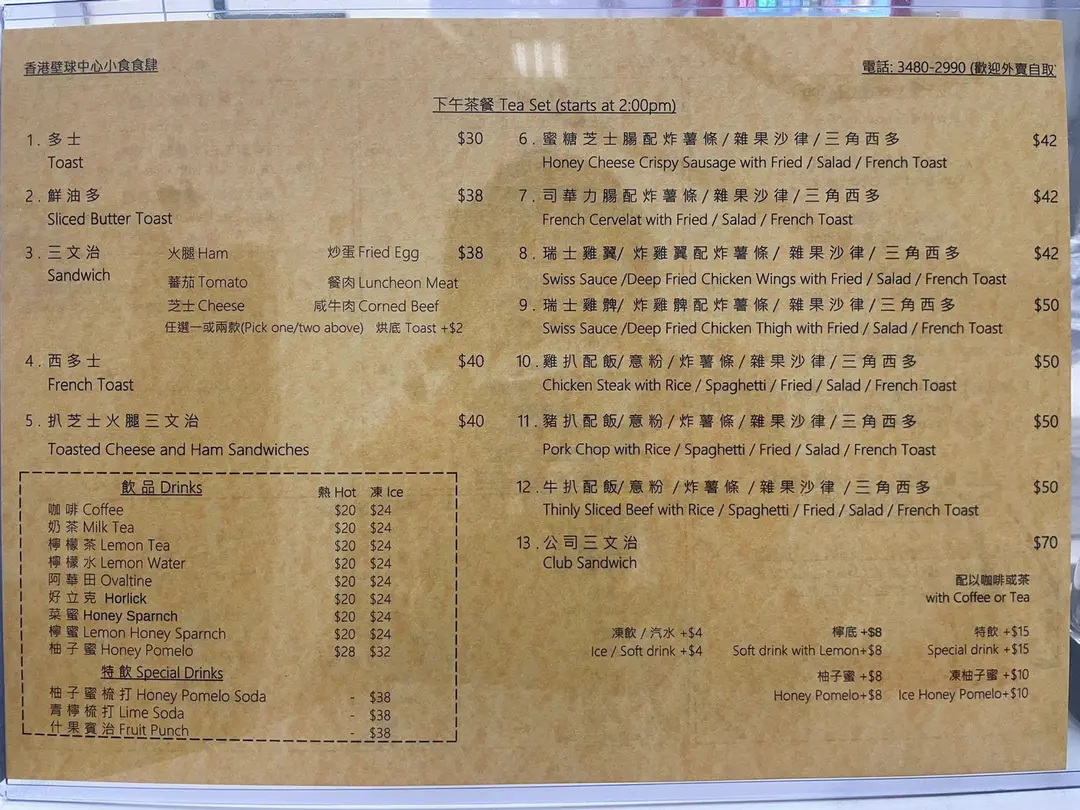 香港壁球中心小食食肆
電話: 3480-2990 (歡迎外賣自取
下午茶餐 Tea Set (starts at 2:00pm)
1. 多士 $30
Toast
2. 鮮油多 $38
Sliced Butter Toast
3. 三文治 火腿 Ham 炒蛋 Fried Egg $38
Sandwich 蕃茄 Tomato 餐肉 Luncheon Meat
芝士 Cheese 咸牛肉 Corned Beef
任選一或兩款(Pick one/two above) 烘底 Toast +$2
4. 西多士 $40
French Toast
5. 扒芝士火腿三文治 $40
Toasted Cheese and Ham Sandwiches
飲品 Drinks 熱 Hot 凍 Ice
咖啡 Coffee $20 $24
奶茶 Milk Tea $20 $24
檸檬茶 Lemon Tea $20 $24
檸檬水 Lemon Water $20 $24
阿華田 Ovaltine $20 $24
好立克 Horlick $20 $24
菜蜜 Honey Sparnch $20 $24
檸蜜 Lemon Honey Sparnch $20 $24
柚子蜜 Honey Pomelo $28 $32
特飲 Special Drinks
柚子蜜梳打 Honey Pomelo Soda - $38
青檸梳打 Lime Soda - $38
什果賓治 Fruit Punch - $38
6. 蜜糖芝士腸配炸薯條/雜果沙律/三角西多 $42
Honey Cheese Crispy Sausage with Fried / Salad / French Toast
7. 司華力腸配炸薯條/雜果沙律/三角西多 $42
French Cervelat with Fried / Salad / French Toast
8. 瑞士雞翼/ 炸雞翼配炸薯條/ 雜果沙律/ 三角西多 $42
Swiss Sauce /Deep Fried Chicken Wings with Fried / Salad / French Toast
9. 瑞士雞髀/ 炸雞髀配炸薯條/ 雜果沙律/三角西多 $50
Swiss Sauce /Deep Fried Chicken Thigh with Fried / Salad / French Toast
10. 雞扒配飯/意粉/炸薯條/雜果沙律/三角西多 $50
Chicken Steak with Rice / Spaghetti / Fried / Salad / French Toast
11. 豬扒配飯/意粉/炸薯條/雜果沙律/三角西多 $50
Pork Chop with Rice / Spaghetti / Fried / Salad / French Toast
12. 牛扒配飯/意粉 /炸薯條 /雜果沙律 /三角西多 $50
Thinly Sliced Beef with Rice / Spaghetti / Fried / Salad / French Toast
13. 公司三文治 $70
Club Sandwich
配以咖啡或茶
with Coffee or Tea
凍飲 / 汽水 +$4 檸底 +$8 特飲 +$15
Ice / Soft drink +$4 Soft drink with Lemon+$8 Special drink +$15
柚子蜜 +$8 凍柚子蜜 +$10
Honey Pomelo+$8 Ice Honey Pomelo+$10